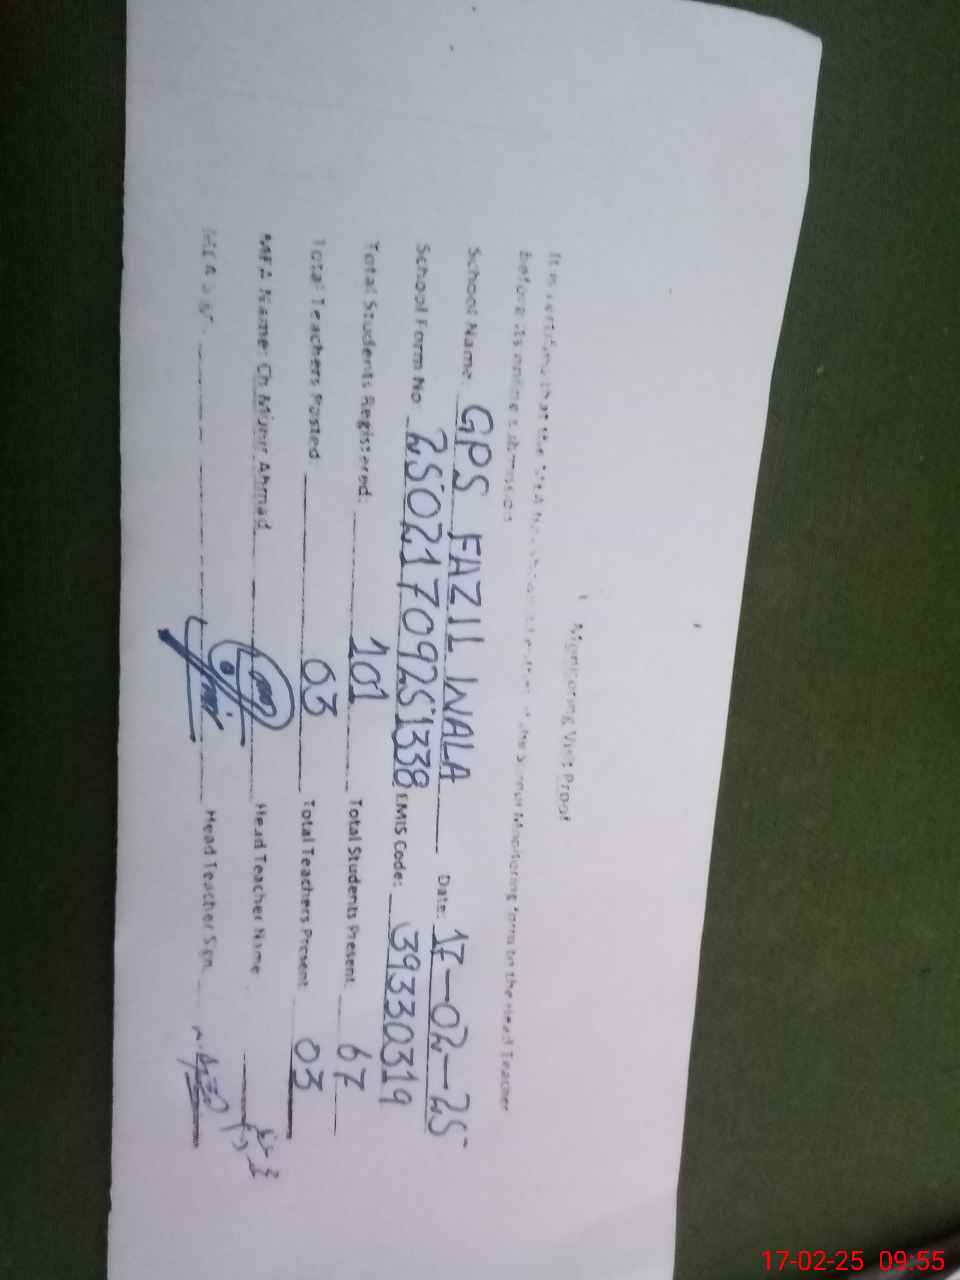 Monitoring Visit Proof
It is certified that the MEA has shown the School Monitoring form to the Head Teacher
before its online submission
School Name: GPS FAZIL WALA Date: 17-02-25
School Form No: 25021709251338 EMIS Code: 39330319
Total Students Registered: 101 Total Students Present 67
Total Teachers Posted: 03 Total Teachers Present 03
MEA Name: Ch Munir Ahmad Head Teacher Name
MEA Sign: Head Teacher Sign.
17-02-25 09:55